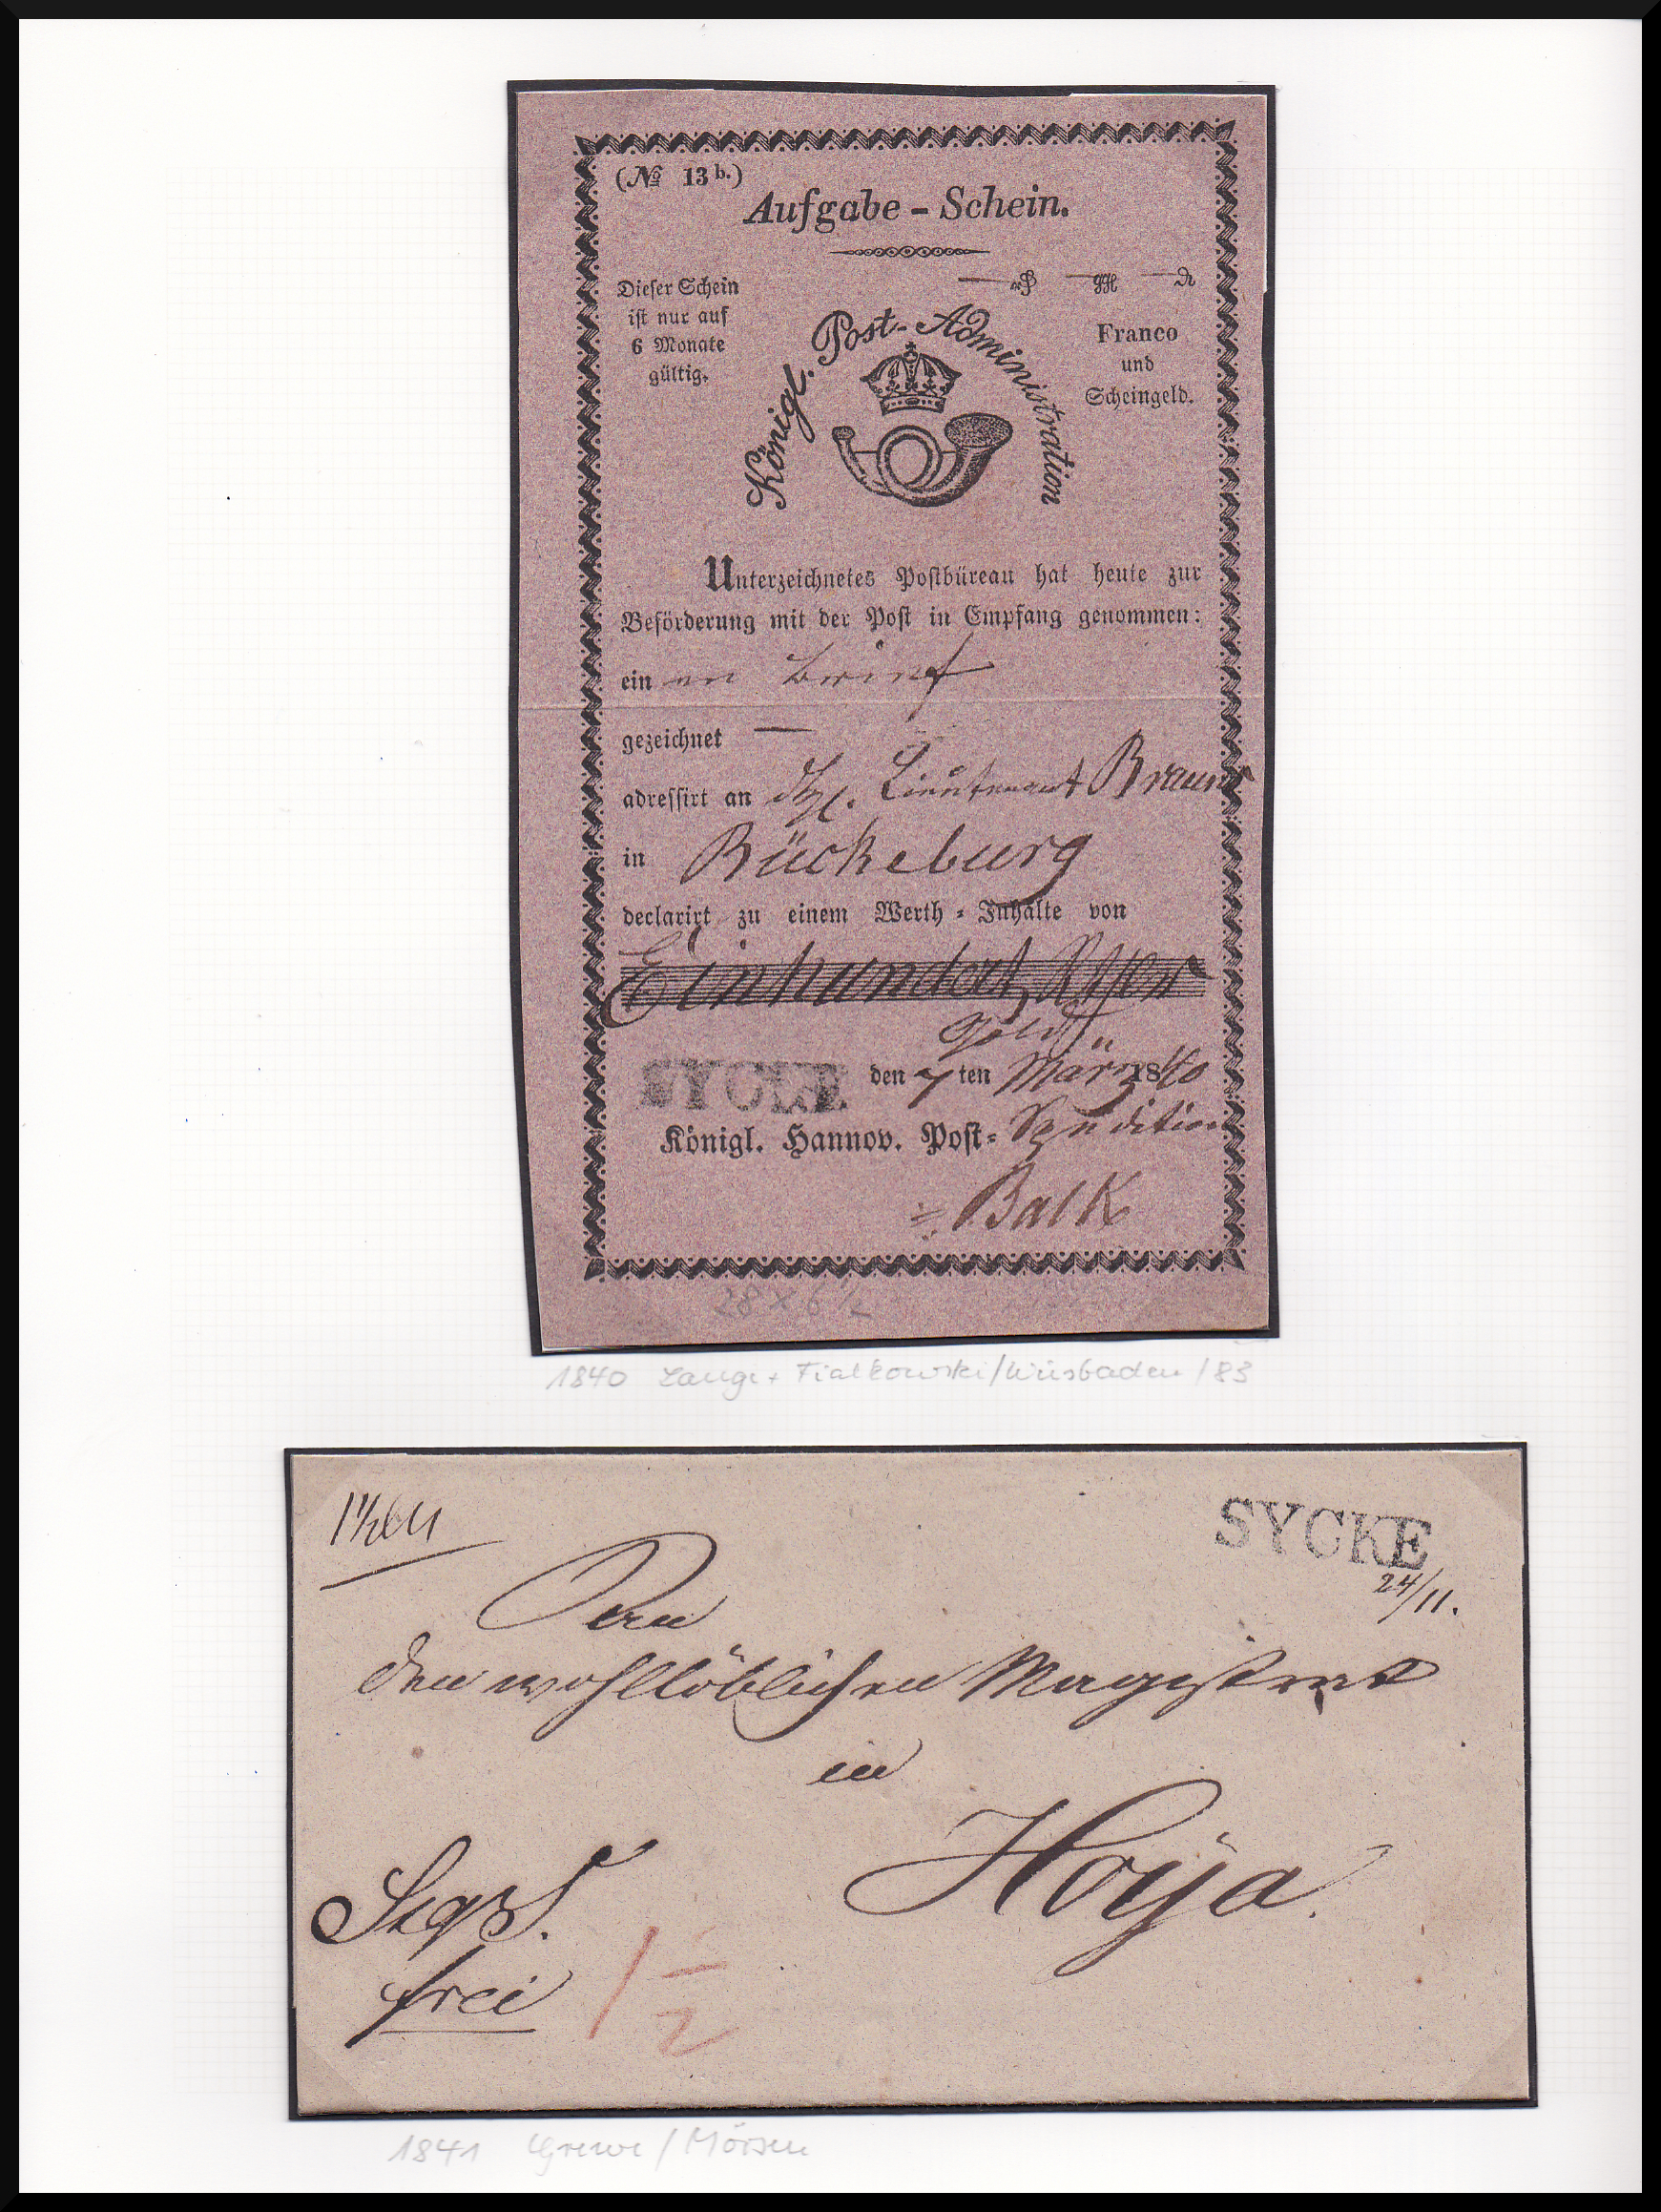 (№ 13 b.)
Aufgabe - Schein.
Dieser Schein
ist nur auf
6 Monate
gültig.
Königl. Post-Administration
Franco
und
Scheingeld.
Unterzeichnetes Postbüreau hat heute zur
Beförderung mit der Post in Empfang genommen:
ein en Brief
gezeichnet —
adressirt an Lieutenant Brauns
in Bückeburg
declarirt zu einem Werth-Inhalte von
Einhundert
Gold
SYCKE den 7 ten März 1840
Königl. Hannov. Post-Spedition
Balk
28 x 6 1/2
1840 Lange + Fialkowski/Wiesbaden/83
SYCKE
24/11.
den wohllöblichen Magistrat
in
Hoya.
frei
1 1/2
1841 Grewe/Mörsen